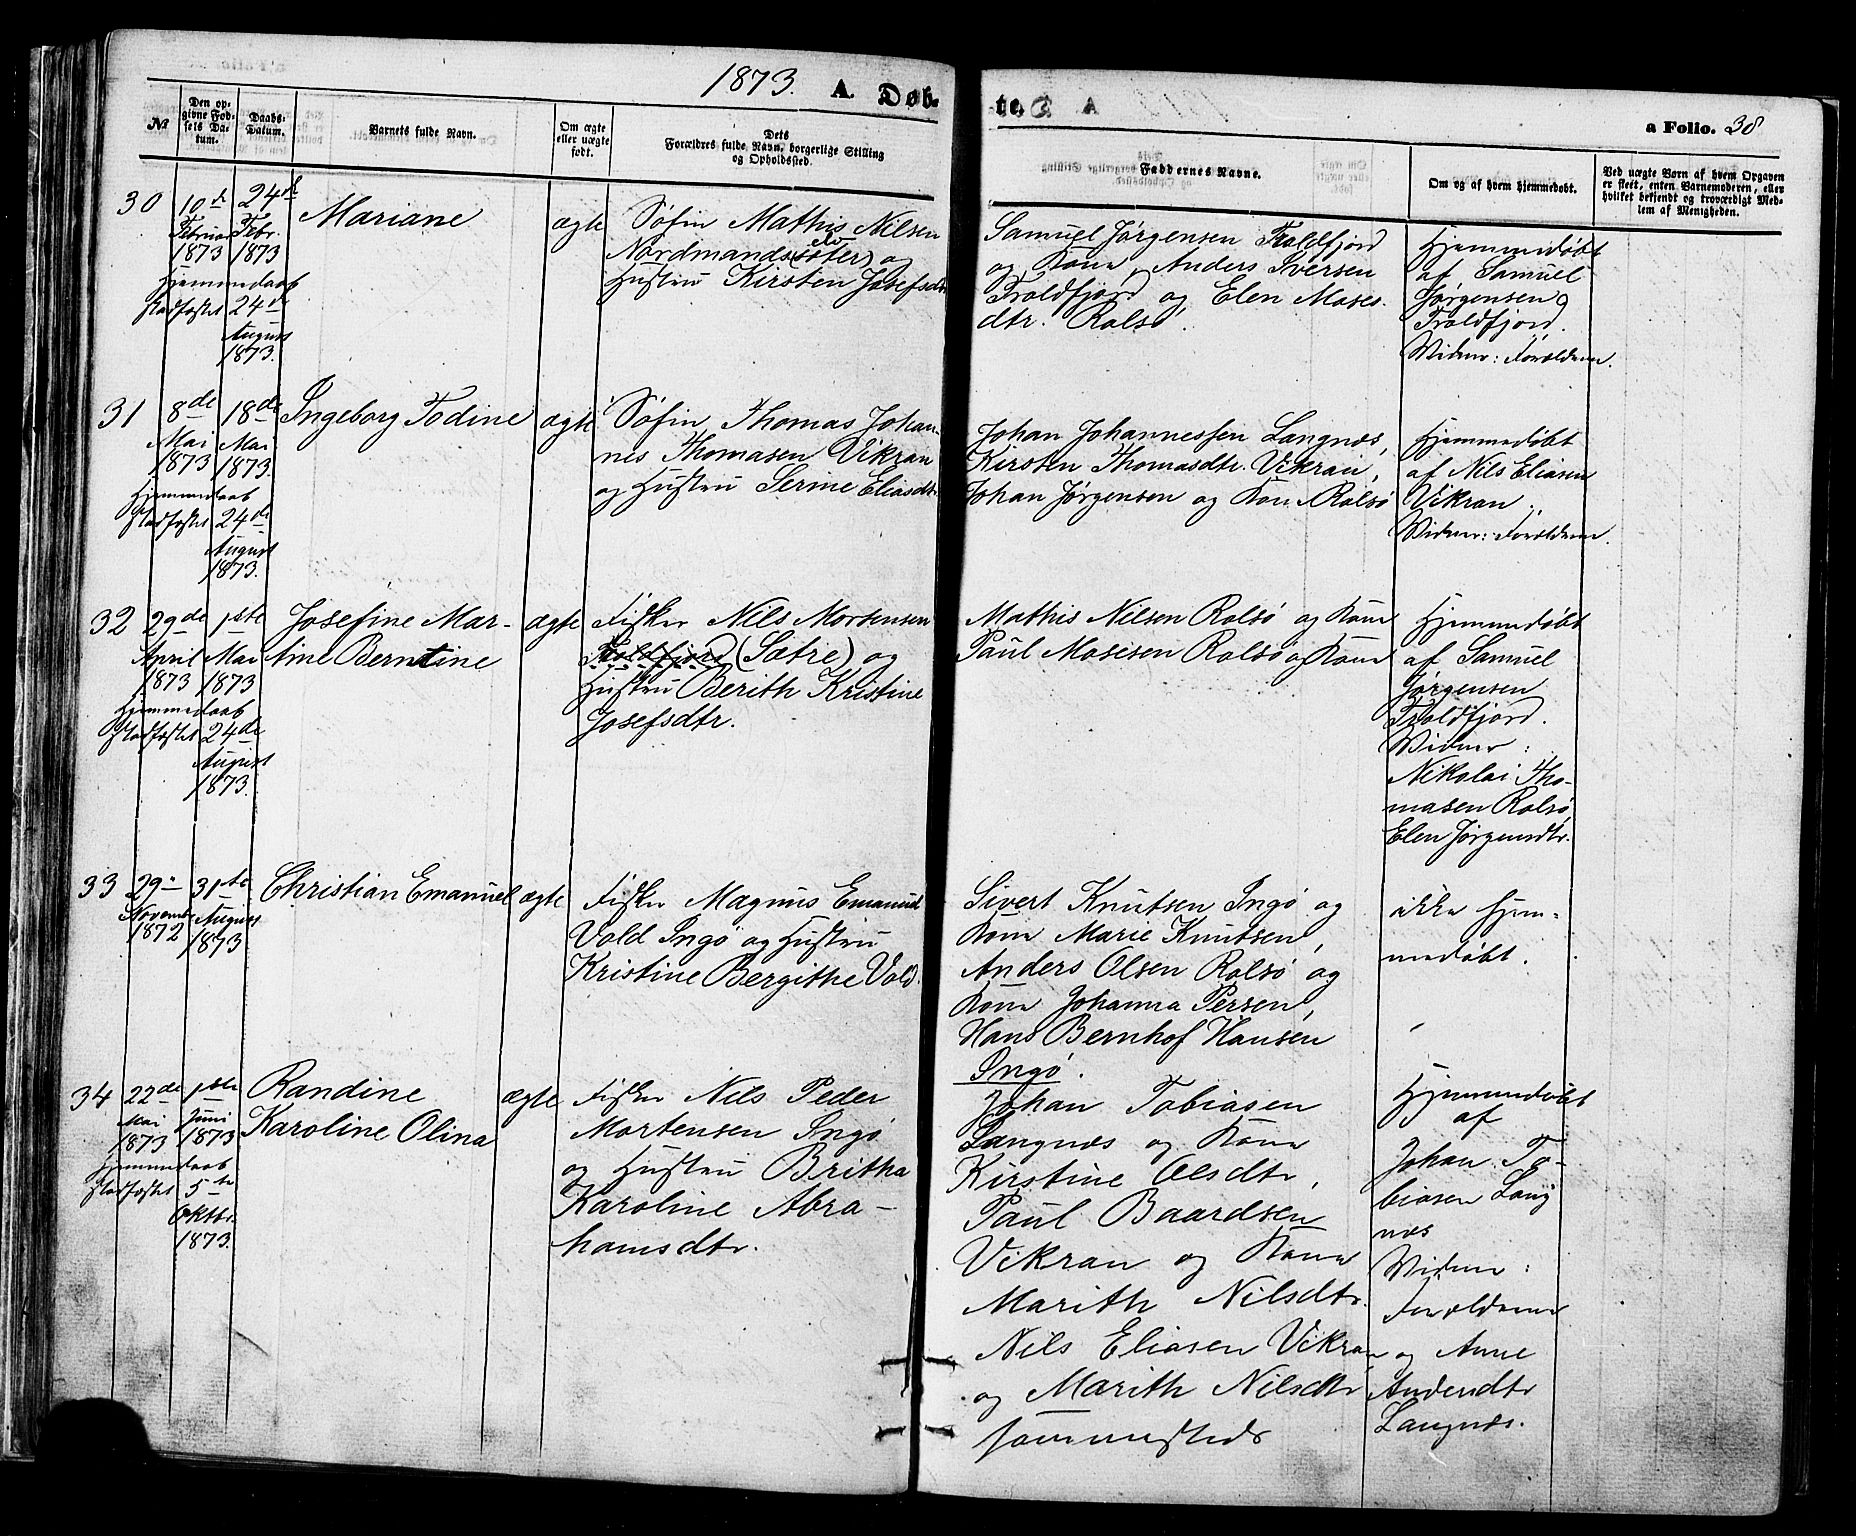 1873. A. Døb-
te.
a Folio. 38
No
Den op-
givne Fød-
sels Da-
tum.
Daabs-
Datum.
Barnets fulde Navn.
Om ægte
eller uægte
født.
Dets
Forældres fulde Navn, borgerlige Stilling
og Opholdssted.
Faddernes Navne.
Om og af hvem hjemmedøbt.
Ved uægte Børn af hvem Opgaven
er skeet, enten Barnemoderen, eller
hvilket bekjendt og troværdigt Med-
lem af Menigheden.
30
10de
Februar
1873
Hjemmedaab
stadfæstet
24de
Febr.
1873
24de
August
1873.
Mariane
ægte
Søfin Mathis Nilsen
Nordmands(søter) og
elv
Hustru Kirsten Josefsdtr
Samuel Jørgensen Troldfjord
og Kone, Anders Iversen
Troldfjord og Elen Moses-
dtr. Rolsø.
Hjemmedøbt
af Samuel
Jørgensen
Troldfjord.
Vidner: Forældrene.
31
8de
Mai
1873
Hjemmedaab
stadfæstet
18de
Mai
1873.
24de
August
1873.
Ingeborg Todine
ægte
Søfin Thomas Johan-
nes Thomasen Vikran
og Hustru Serine Eliasdtr
Johan Johannessen Langnæs,
Kirsten Thomasdtr. Vikran,
Johan Jørgensen og Kone Rolsø
Hjemmedøbt
af Nils Eliasen
Vikran.
Vidner: Forældrene.
32
29de
April
1873
Hjemmedaab
stadfæstet
1ste
Mai
1873
24de
August
1873.
Josefine Mar-
tine Berntine
ægte
Fisker Nils Mortensen
Troldfjord (Sætre) og
Hustru Berith Kristine
Josefsdtr.
Mathis Nilsen Rolsø og Kone
Paul Mosesen Rolsø og Kone
Hjemmedøbt
af Samuel
Jørgensen
Troldfjord.
Vidner:
Nikolai Tho-
masen Rolsø,
Elen Jørgensdtr.
33
29de
Novembr
1872
31te
August
1873
Christian Emanuel
ægte
Fisker Magnus Emanuel
Vold Ingø og Hustru
Kristine Bergithe Vold.
Sivert Knutsen Ingø og
Kone Marie Knutsen,
Anders Olsen Rolsø og
Kone Johanna Persen,
Hans Bernhof Hansen
Ingø.
ikke hjem-
medøbt.
34
22de
Mai
1873
Hjemmedaab
stadfæstet
1ste
Juni
1873
5te
Oktbr.
1873.
Randine
Karoline Olina
ægte
Fisker Nils Peder
Mortensen Ingø
og Hustru Britha
Karoline Abra-
hamsdtr.
Johan Tobiasen
Langnæs og Kone
Kirstine Olsdtr,
Paul Baardsen
Vikran og Kone
Marith Nilsdtr.
Nils Eliasen Vikran
og Marith Nilsdtr
sammesteds
Hjemmedøbt
af
Johan To-
biasen Lang
næs
Vidner:
Forældrene
og Anne
Andersdtr
Langnæs.